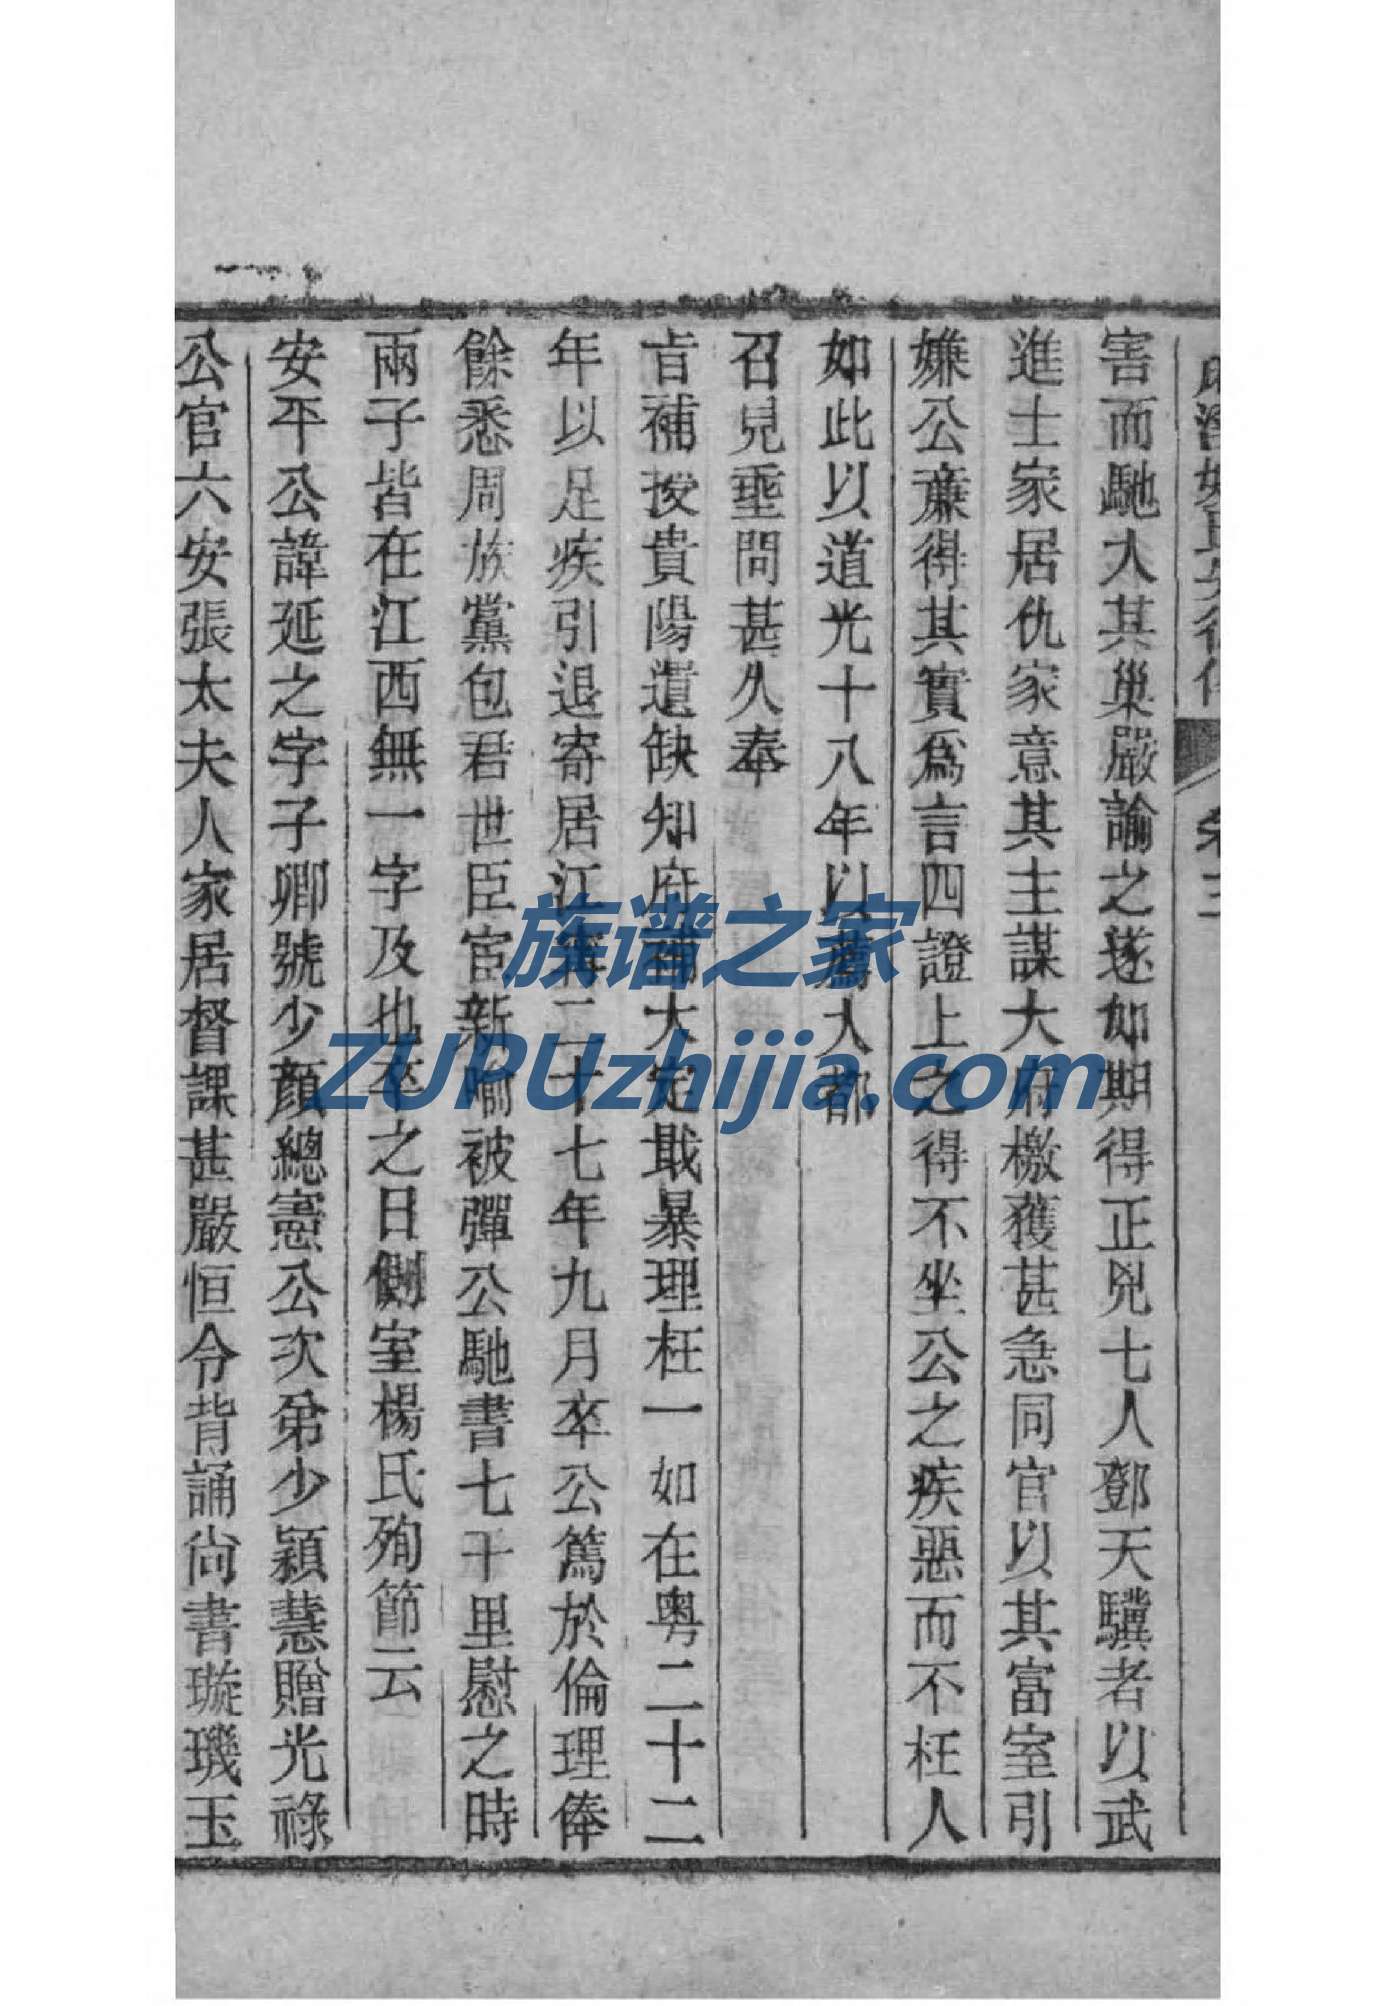 害而馳入其巢嚴諭之遂如期得正兇七人鄧天驥者以武
進士家居仇家意其主謀大府檄獲甚急同官以其富室引
嫌公廉得其實爲言四證上之得不坐公之疾惡而不枉人
如此以道光十八年以薦入都
召見垂問甚久奉
旨補授貴陽遺缺知府補大定戢暴理枉一如在粵二十二
年以足疾引退寄居江寧二十七年九月卒公篤於倫理俸
餘悉周族黨包君世臣宦新喻被彈公馳書七千里慰之時
兩子皆在江西無一字及也卒之日側室楊氏殉節云
安平公諱延之字子卿號少顔總憲公次弟少穎慧贈光祿
公官六安張太夫人家居督課甚嚴恒令背誦尚書璇璣玉
族谱之家
ZUPUzhijia.com